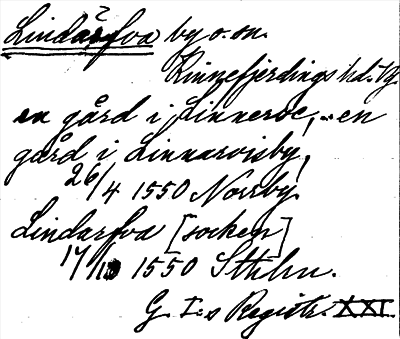 Lindärfva by o. sn.
Kinnefjerdings hd. Vg.
en gård i Linneroe, .. en
gård i Linnarvisby,
26/4 1550 Norrby
Lindarfva [socken]
17/10 1550 Sthlm.
G. I:s Registr. XXI.